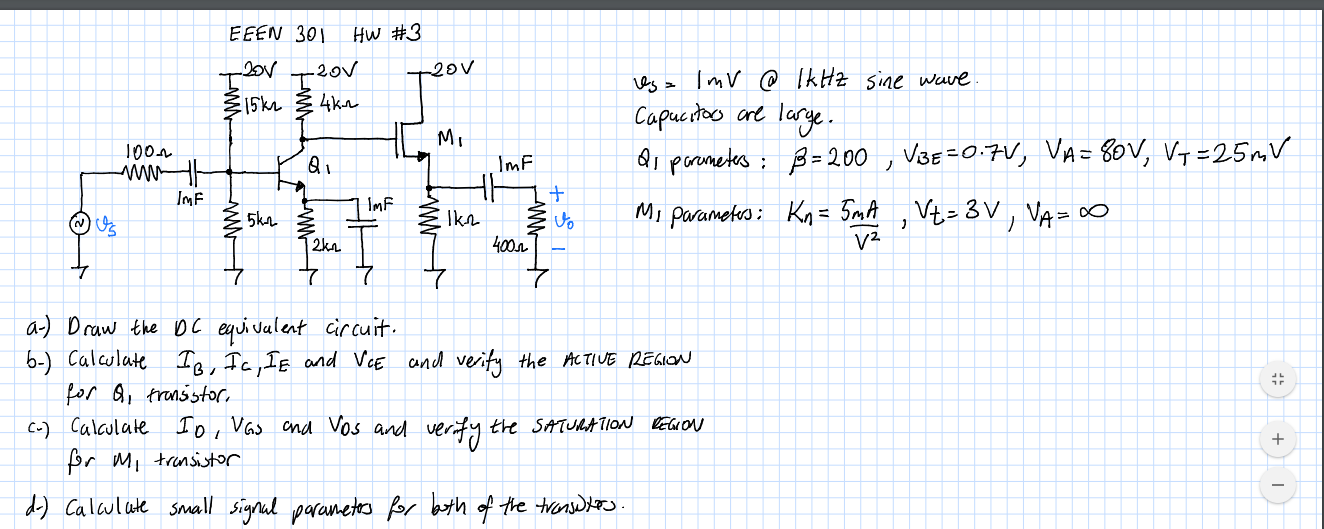 EEEN 301 HW #3
20V 20V 20V
15kΩ 4kΩ
100Ω
M1
Q1
1mF
1mF
1mF
+
vs
5kΩ
2kΩ
1kΩ
400Ω
vo
-
vs = 1mV @ 1kHz sine wave.
Capacitors are large.
Q1 parameters: β=200, VBE=0.7V, VA=80V, VT=25mV
M1 parameters: Kn = 5mA/V², Vt=3V, VA=∞
a-) Draw the DC equivalent circuit.
b-) Calculate IB, IC, IE and VCE and verify the ACTIVE REGION
for Q1 transistor.
c-) Calculate ID, VGS and VDS and verify the SATURATION REGION
for M1 transistor
d-) Calculate small signal parameters for both of the transistors.